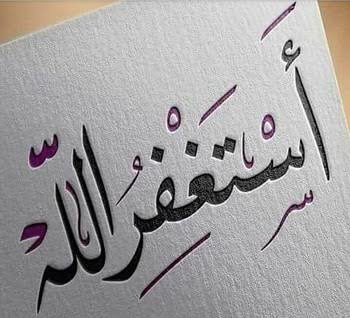 أَسْتَغْفِرُ اللّٰه